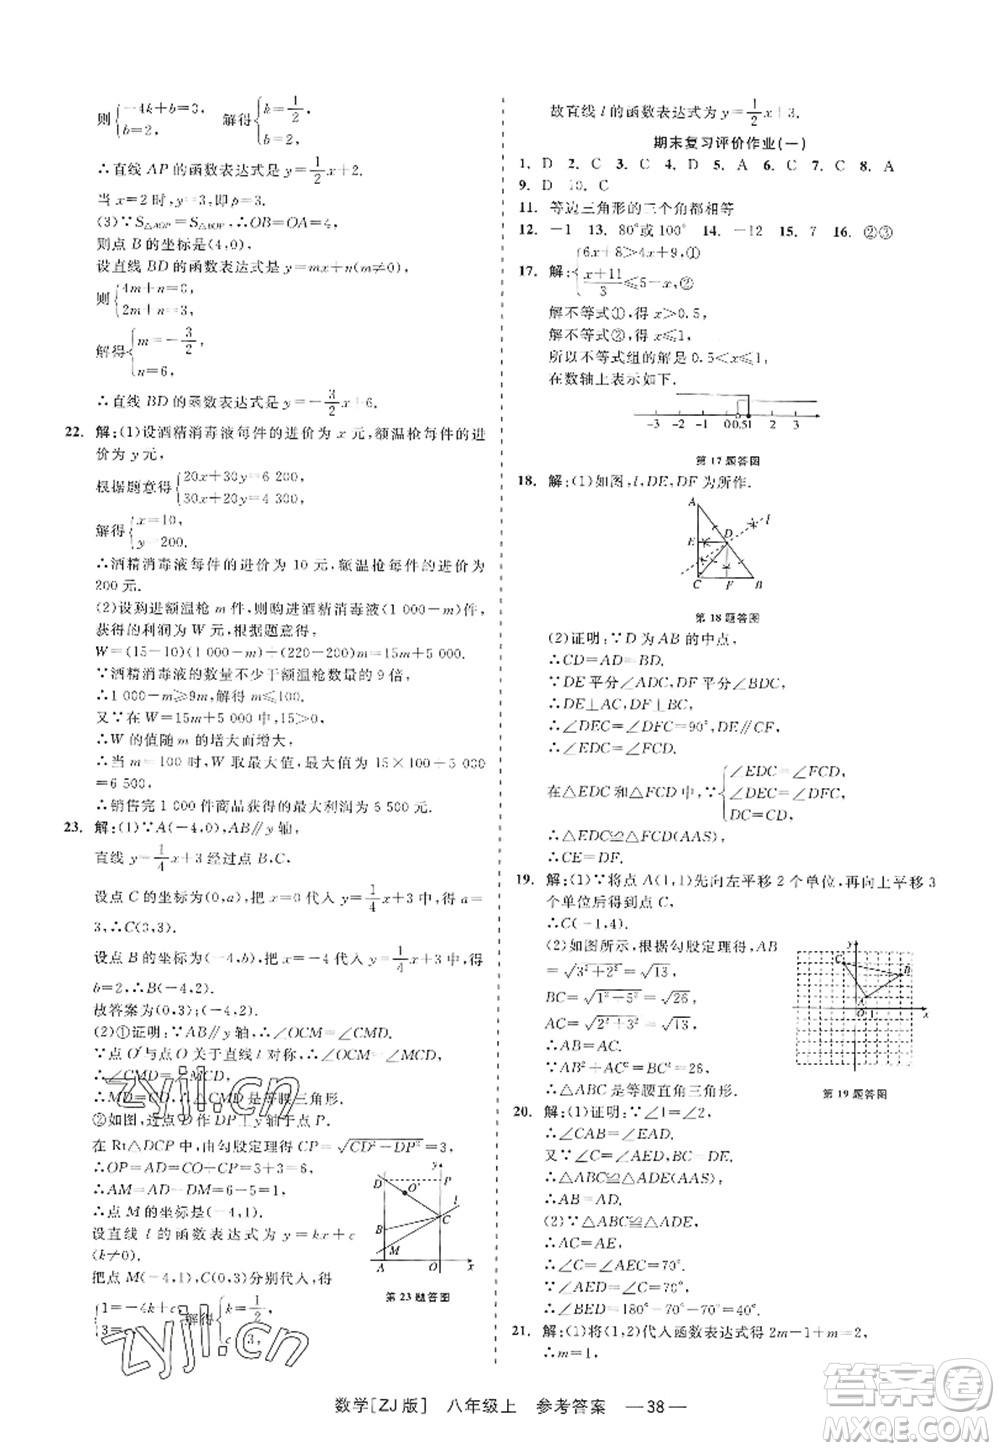 则{-4k+b=0, b=2, 解得{k=1/2, b=2.
∴直线 AP 的函数表达式是 y=1/2x+2.
当 x=2 时,y=3,即 p=3.
(3)∵S△AOP=S△BOP,∴OB=OA=4,
则点 B 的坐标是(4,0),
设直线 BD 的函数表达式是 y=mx+n(m≠0)
则{4m+n=0, 2m+n=3,
解得{m=-3/2, n=6,
∴直线 BD 的函数表达式是 y=-3/2x+6.
22. 解:(1)设酒精消毒液每件的进价为 x 元,额温枪每件的进
价为 y 元,
根据题意得{20x+30y=6 200 30x+20y=4 300
解得{x=10, y=200.
∴酒精消毒液每件的进价为 10 元,额温枪每件的进价为
200 元.
(2)设购进额温枪 m 件,则购进酒精消毒液(1 000-m)件,
获得的利润为 W 元,根据题意得,
W=(15-10)(1 000-m)+(220-200)m=15m+5 000.
∵酒精消毒液的数量不少于额温枪数量的 9 倍,
∴1 000-m≥9m,解得 m≤100.
又∵在 W=15m+5 000 中,15>0,
∴W 的值随 m 的增大而增大,
∴当 m=100 时,W 取最大值,最大值为 15×100+5 000=
6 500,
∴销售完 1 000 件商品获得的最大利润为 6 500 元.
23. 解:(1)∵A(-4,0),AB∥y 轴,
直线 y=1/4x+3 经过点 B,C,
设点 C 的坐标为(0,a),把 x=0 代入 y=1/4x+3,得 a=
3,∴C(0,3);
设点 B 的坐标为(-4,b),把 x=-4 代入 y=1/4x+3,得
b=2,∴B(-4,2),
故答案为(0,3);(-4,2)
(2)①证明:∵AB∥y 轴,∴∠OCM=∠CMD.
∵点 O′与点 O 关于直线 l 对称,∴∠OCM=∠DCM,
∴∠CMD=∠DCM,∴△CMD 是等腰三角形.
②如图,过点 D 作 DP⊥y 轴于点 P.
在 Rt△DCP 中,由勾股定理得 CP=√CD²-DP²=3,
∴OP=AD=CO+CP=3+3=6,
∴AM=AD-DM=6-5=1,
∴点 M 的坐标是(-4,1),
设直线 l 的函数表达式为 y=kx+c
(k≠0).
把点 M(-4,1),C(0,3)分别代入,得
{1=-4k+c 3= 解得{k=1/2, c=3,
D O′ P y l C B M A O x
第 23 题答图
故直线 l 的函数表达式为 y=1/2x+3.
期末复习评价作业(一)
1. D 2. C 3. C 4. D 5. A 6. C 7. C 8. A
9. D 10. C
11. 等边三角形的三个角都相等
12. -1 13. 80°或 100° 14. -12 15. 7 16. ②③
17. 解:{6x+8>4x+9,① x+11/3≤5-x,②
解不等式①,得 x>0.5,
解不等式②,得 x≤1,
所以不等式组的解是 0.5<x≤1.
在数轴上表示如下.
-3 -2 -1 0 0.5 1 2 3
第 17 题答图
18. 解:(1)如图,l,DE,DF 为所作.
A l D E C F B
第 18 题答图
(2)证明:∵D 为 AB 的中点,
∴CD=AD=BD.
∵DE 平分∠ADC,
∴DE⊥AC,
∴∠DEC=∠DFC=90°,DE∥CF,
∴∠EDC=∠FCD.
在△EDC 和△FCD 中,{∠EDC=∠FCD, ∠DEC=∠CFD, DC=CD,
∴△EDC≌△FCD(AAS),
∴CE=DF.
19. 解:(1)∵将点 A(1,1)先向左平移 2 个单位,再向上平移 3
个单位后得到点 C,
∴C(-1,4).
(2)如图所示,根据勾股定理得,AB
=√3²+2²=√13,
BC=√1²+5²=√26,
AC=√2²+3²=√13,
∴AB=AC.
∵AB²+AC²=BC²=26,
∴△ABC 是等腰直角三角形.
y C B A O 1 x
第 19 题答图
21. 解:(1)证明:∵∠1=∠2,
∴∠CAB=∠EAD.
又∵AC=AE,BC=DE,
∴△ABC≌△ADE.
(2)∵△ABC≌△ADE,
∴∠C=∠E,
∵∠AED=∠C=70°,
∴∠BED=180°-70°-70°=40°.
21. 解:(1)将(1,2)代入函数表达式得 2m-1+m=2,
∴m=1.
zyjl.cn
zyjl.cn
数学[ZJ 版] 八年级上 参考答案 —38—
作业精灵